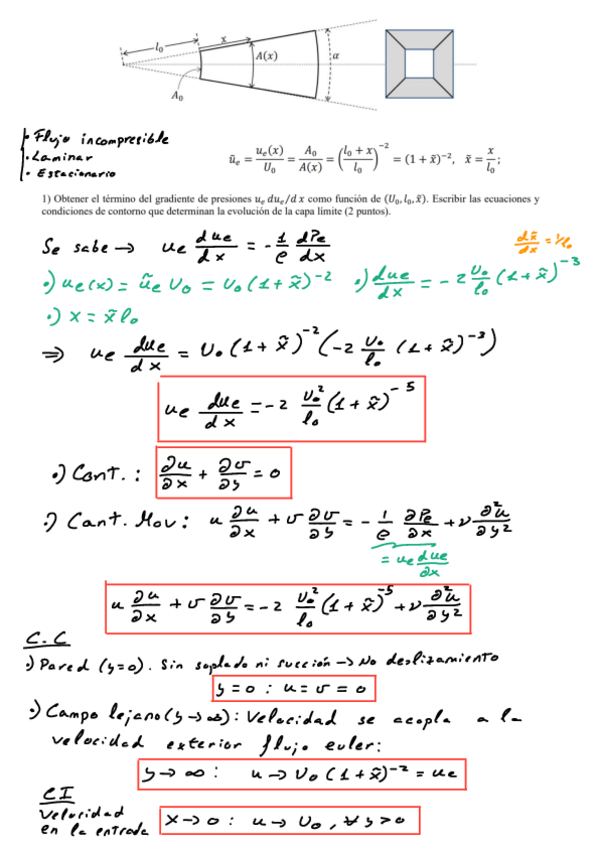 l₀
x
A(x)
α
A₀
• Flujo incompresible
• Laminar
• Estacionario
ũₑ = uₑ(x)/U₀ = A₀/A(x) = ((l₀ + x)/l₀)⁻² = (1 + x̃)⁻², x̃ = x/l₀;
1) Obtener el término del gradiente de presiones uₑ duₑ/d x como función de (U₀, l₀, x̃). Escribir las ecuaciones y
condiciones de contorno que determinan la evolución de la capa límite (2 puntos).
Se sabe → uₑ duₑ/dx = -1/ρ dPₑ/dx
dx̃/dx = 1/l₀
•) uₑ(x) = ũₑ U₀ = U₀(1+x̃)⁻² •) duₑ/dx = -2 U₀/l₀ (1+x̃)⁻³
•) x = x̃ l₀
⇒ uₑ duₑ/dx = U₀(1+x̃)⁻²(-2 U₀/l₀ (1+x̃)⁻³)
uₑ duₑ/dx = -2 U₀²/l₀ (1+x̃)⁻⁵
•) Cont.: ∂u/∂x + ∂v/∂y = 0
•) Cant. Mov: u ∂u/∂x + v ∂v/∂y = -1/ρ ∂Pₑ/∂x + ν ∂²u/∂y²
= uₑ duₑ/∂x
u ∂u/∂x + v ∂v/∂y = -2 U₀²/l₀ (1+x̃)⁻⁵ + ν ∂²u/∂y²
C.C
•) Pared (y=0). Sin soplado ni succión → No deslizamiento
y=0 : u=v=0
•) Campo lejano (y→∞): Velocidad se acopla a la
velocidad exterior flujo euler:
y→∞ : u→U₀(1+x̃)⁻² = uₑ
CI
Velocidad
en la entrada
x→0 : u→U₀, ∀y>0